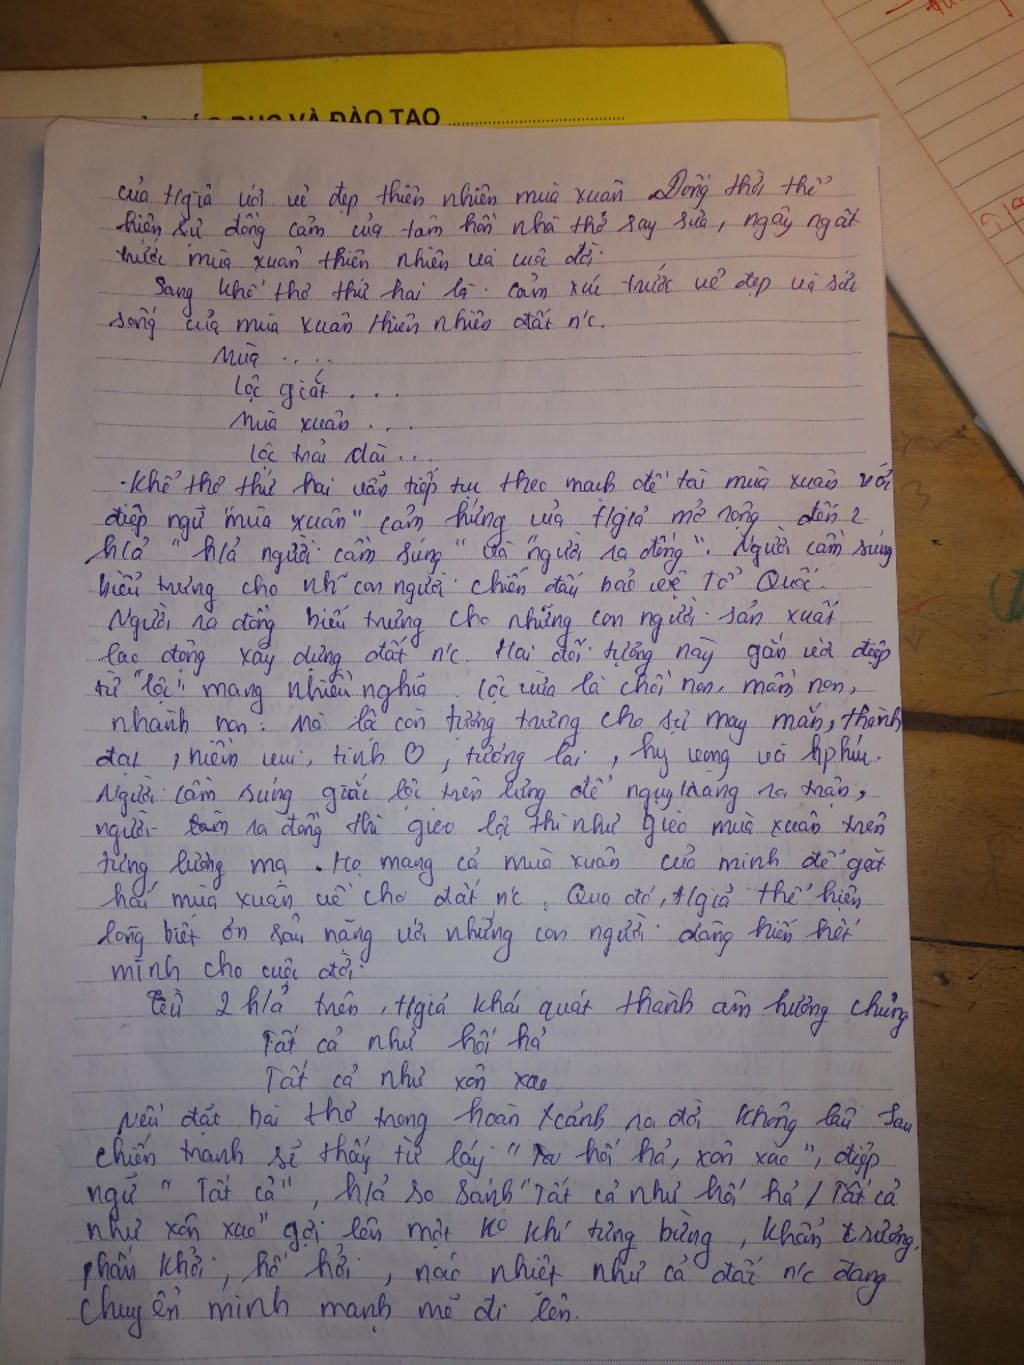 DỤC VÀ ĐÀO TẠO
của t/giả với vẻ đẹp thiên nhiên mùa xuân. Đồng thời thể
hiện sự đồng cảm của tâm hồn nhà thơ say sưa, ngây ngất
trước mùa xuân thiên nhiên và cuộc đời.
Sang khổ thơ thứ hai là cảm xúc trước vẻ đẹp và sức
sống của mùa xuân thiên nhiên đất n'c.
Mùa ....
Lộc giắt ...
Mùa xuân ...
Lộc trải dài ...
- Khổ thơ thứ hai vẫn tiếp tục theo mạch đề tài mùa xuân với
điệp ngữ "mùa xuân" cảm hứng của t/giả mở rộng đến 2
h/ả "h/ả người cầm súng" và "người ra đồng". Người cầm súng
biểu trưng cho nh~ con người chiến đấu bảo vệ Tổ Quốc.
Người ra đồng biểu trưng cho những con người sản xuất
lao động xây dựng đất n'c. Hai đối tượng này gắn với điệp
từ "lộc" mang nhiều nghĩa. Lộc vừa là chồi non, mầm non,
nhành non. Mà là còn tượng trưng cho sự may mắn, thành
đạt, niềm vui, tình ♡, tương lai, hy vọng và hphúc.
Người cầm súng giắc lộc trên lưng để ngụy trang ra trận,
người ra đồng thì gieo lộc thì như gieo mùa xuân trên
từng lương mạ. Họ mang cả mùa xuân của mình để gặt
hái mùa xuân về cho đất n'c. Qua đó, t/giả thể hiện
lòng biết ơn sâu nặng với những con người dâng hiến hết
mình cho cuộc đời.
Từ 2 h/ả trên, t/giả khái quát thành âm hưởng chung
Tất cả như hối hả
Tất cả như xôn xao
Nếu đặt bài thơ trong hoàn xcảnh ra đời không lâu sau
chiến tranh sẽ thấy từ láy " hối hả, xôn xao", điệp
ngữ "Tất cả", h/ả so sánh "Tất cả như hối hả / Tất cả
như xôn xao" gợi lên một ko khí tưng bừng, khẩn trương,
phấn khởi, hồ hởi, náo nhiệt như cả đất n'c đang
chuyển mình mạnh mẽ đi lên.